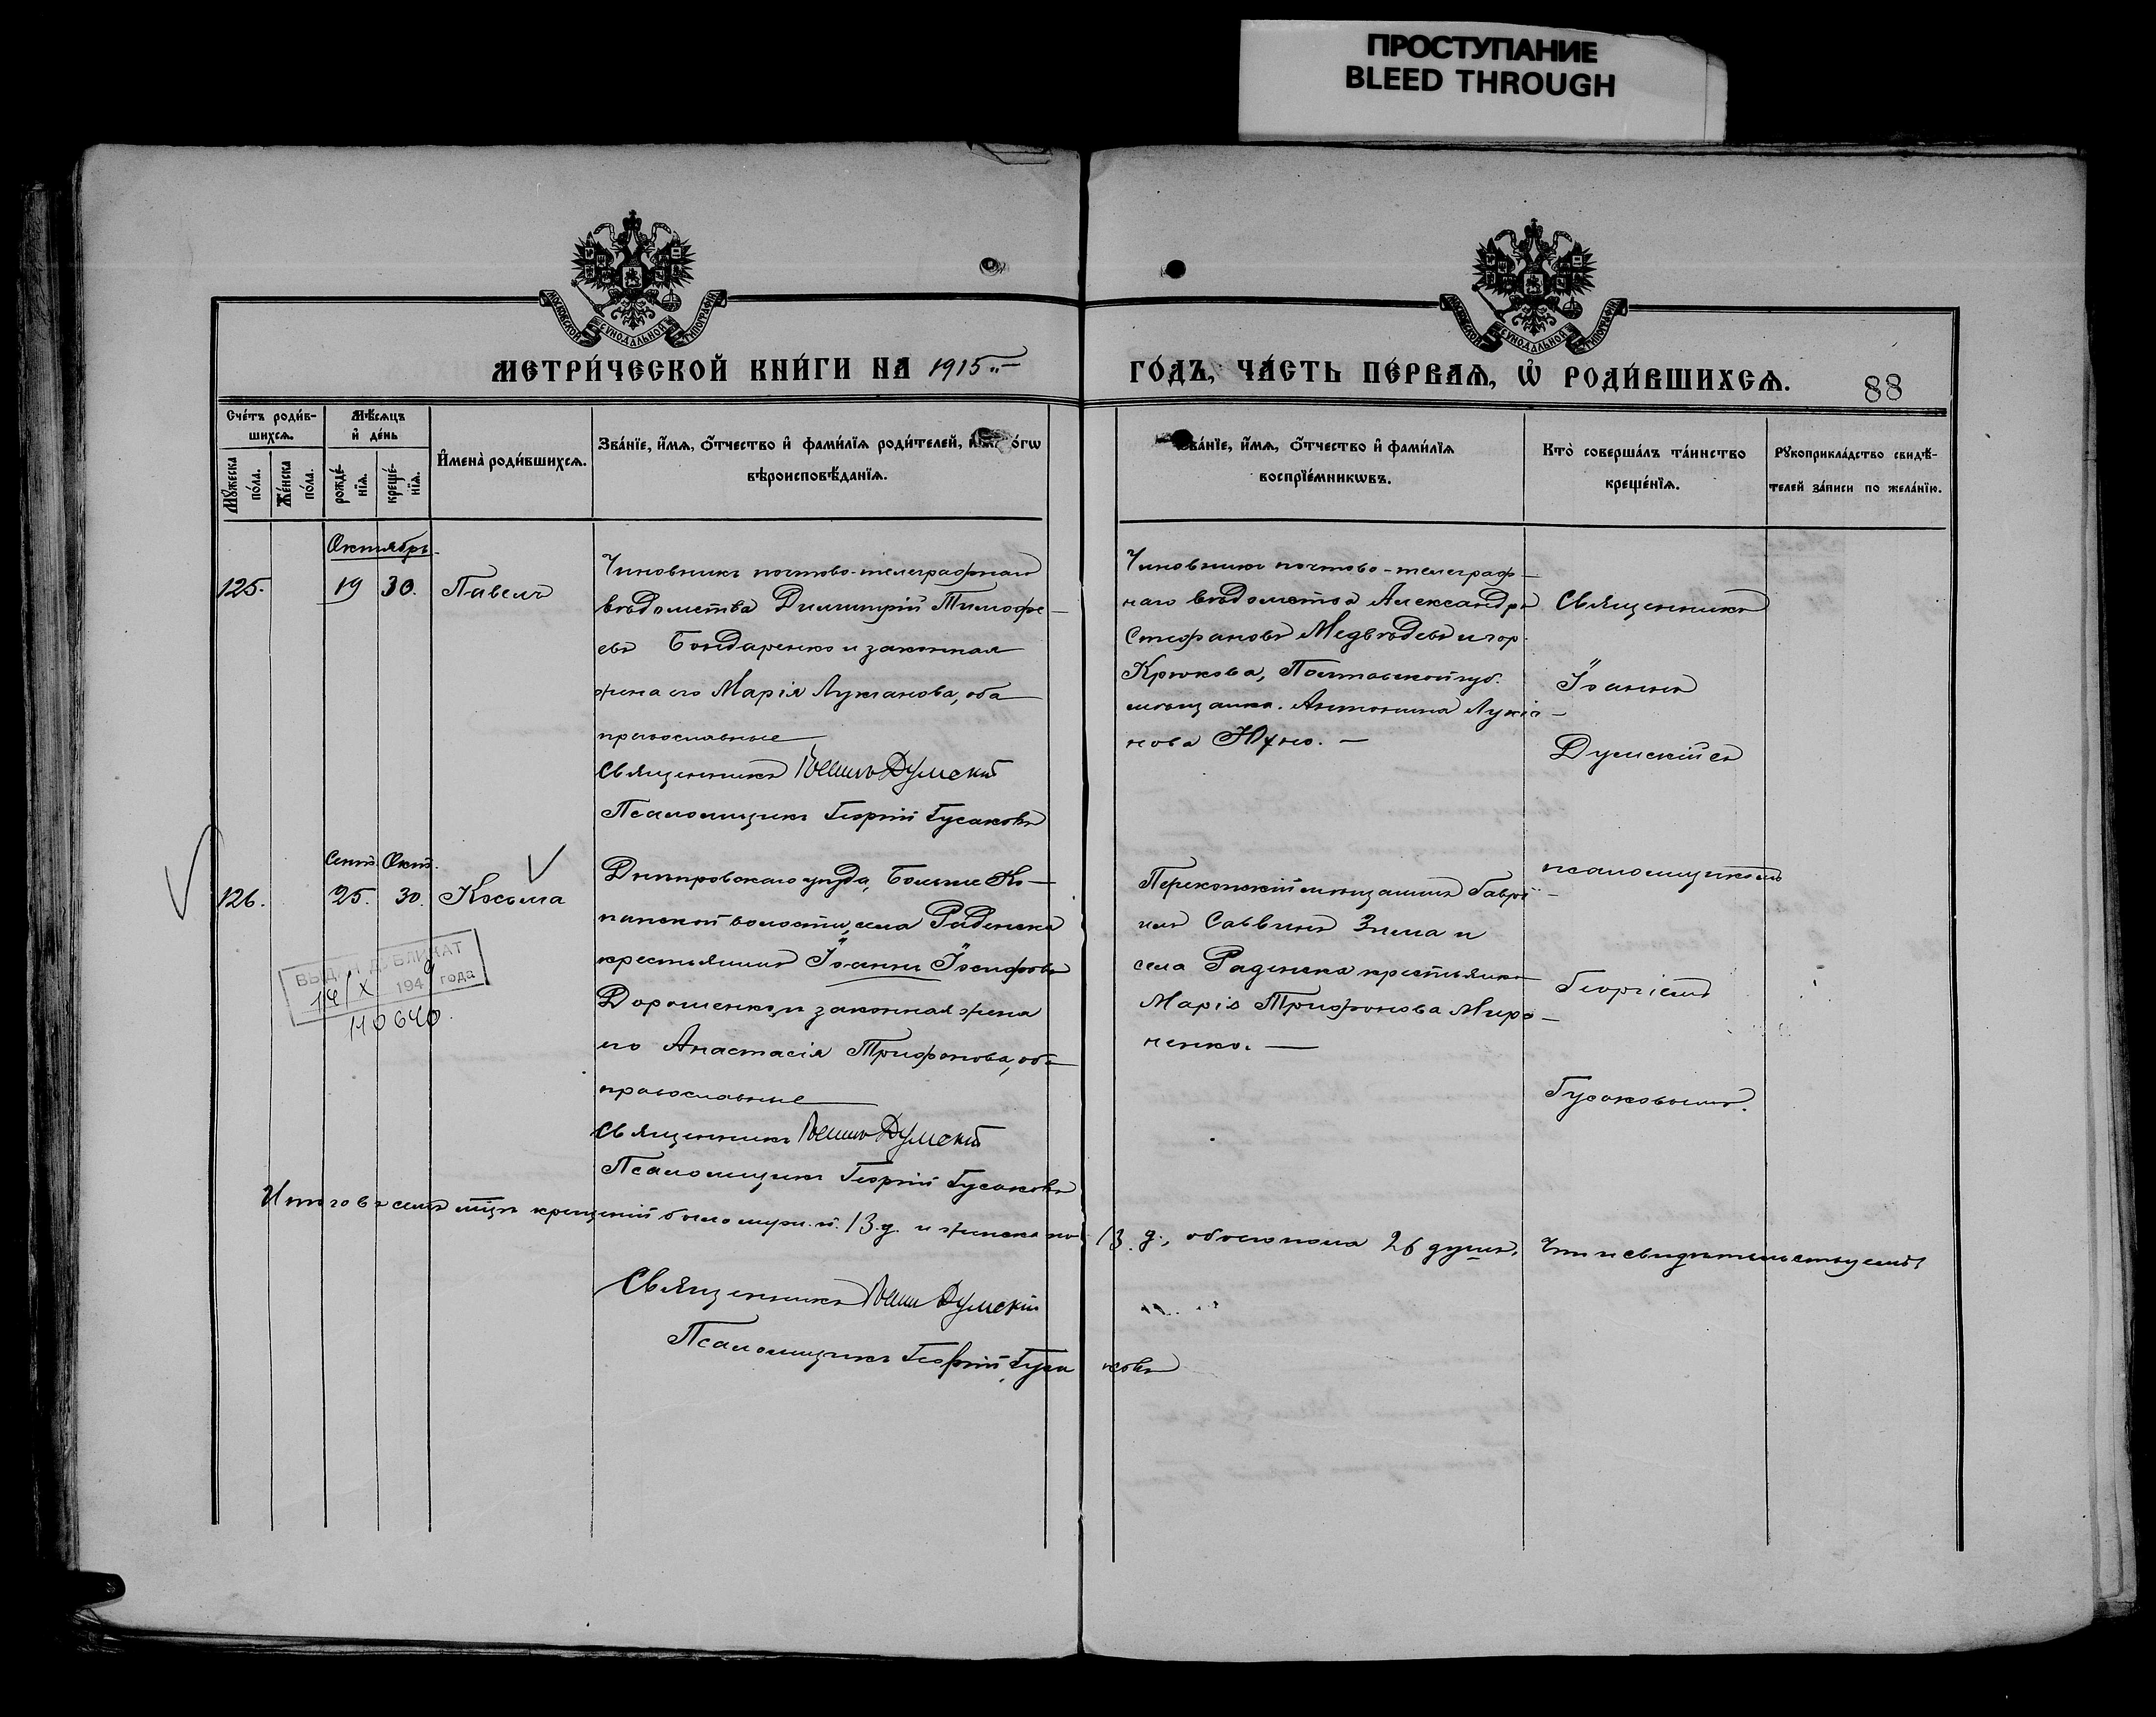 ПРОСТУПАНИЕ
BLEED THROUGH
МОСКОВСКОЙ СѴНОДАЛЬНОЙ ТИПОГРАФІИ
МОСКОВСКОЙ СѴНОДАЛЬНОЙ ТИПОГРАФІИ
МЕТРИ́ЧЕСКОЙ КНИ́ГИ НА 1915
ГО́ДЪ, ЧА́СТЬ ПЕ́РВАѦ, Ѡ҆ РОДИ́ВШИХСѦ.
88
Сче́тъ роди́в-
шихсѧ.
Мꙋ́жеска по́ла.
Же́нска по́ла.
Мѣ́сѧцъ
и҆ де́нь
рожде́-
нїѧ.
креще́-
нїѧ.
И҆мена̀ роди́вшихсѧ.
Зва́нїе, и҆́мѧ, ѻ҆́тчество и҆ фами́лїѧ роди́телей, и҆
о́гѡ
вѣроисповѣ́данїѧ.
ва́нїе, и҆́мѧ, ѻ҆́тчество и҆ фами́лїѧ
воспрїе́мникѡвъ.
Кто̀ соверша́лъ та́инство
креще́нїѧ.
Рꙋкоприкла́дство свидѣ́-
телей за́писи по жела́нїю.
Октябрь.
125.
19
30.
Павелъ
Чиновникъ почтово-телеграфнаго
вѣдомства Димитрій Тимофе-
евъ Бондаренко и законная
жена его Марія Лукианова, оба
православные
Священникъ Іоаннъ Думскій
Псаломщикъ Георгій Гусаковъ
Чиновникъ почтово-телеграф-
наго вѣдомства Александръ
Стефановъ Медвѣдевъ и гор.
Крюкова, Полтавской губ.
мѣщанка Антонина Лукіа-
нова Юхно.
Священникъ
Іоаннъ
Думскій съ
псаломщикомъ
Георгіемъ
Гусаковымъ.
Сент. Окт.
126.
25.
30.
Косьма
Днѣпровскаго уѣзда, Больше Ко-
панской волости, села Раденска
крестьянинъ Іоаннъ Іосифовъ
Дорошенко и законная жена
его Анастасія Трифонова, оба
православные
Священникъ Іоаннъ Думскій
Псаломщикъ Георгій Гусаковъ
Перекопскій мѣщанинъ Гаврі-
илъ Саввинъ Зима и
села Раденска крестьянка
Марія Трифонова Миро-
ненко.
ВЫДАН ДУБЛИКАТ
14/X 1949 года
110640.
Итого въ семъ мцѣ крещеній было муж. п. 13 д. и женска пол. 13 д., обоего пола 26 душъ. Что и свидѣтельствуемъ
Священникъ Іоаннъ Думскій
Псаломщикъ Георгій Гусаковъ